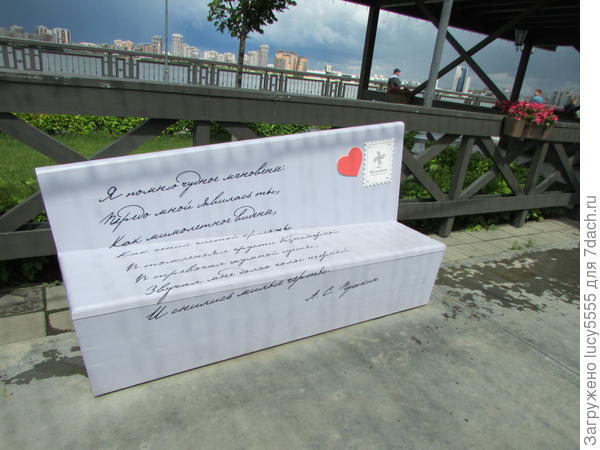 Я помню чудное мгновенье:
Передо мной явилась ты,
Как мимолетное виденье,
Как гений чистой красоты
В томленьях грусти безнадежной
В тревогах шумной суеты,
Звучал мне долго голос нежный
И снились милые черты.
А. С. Пушкин
Загружено lucy5555 для 7dach.ru